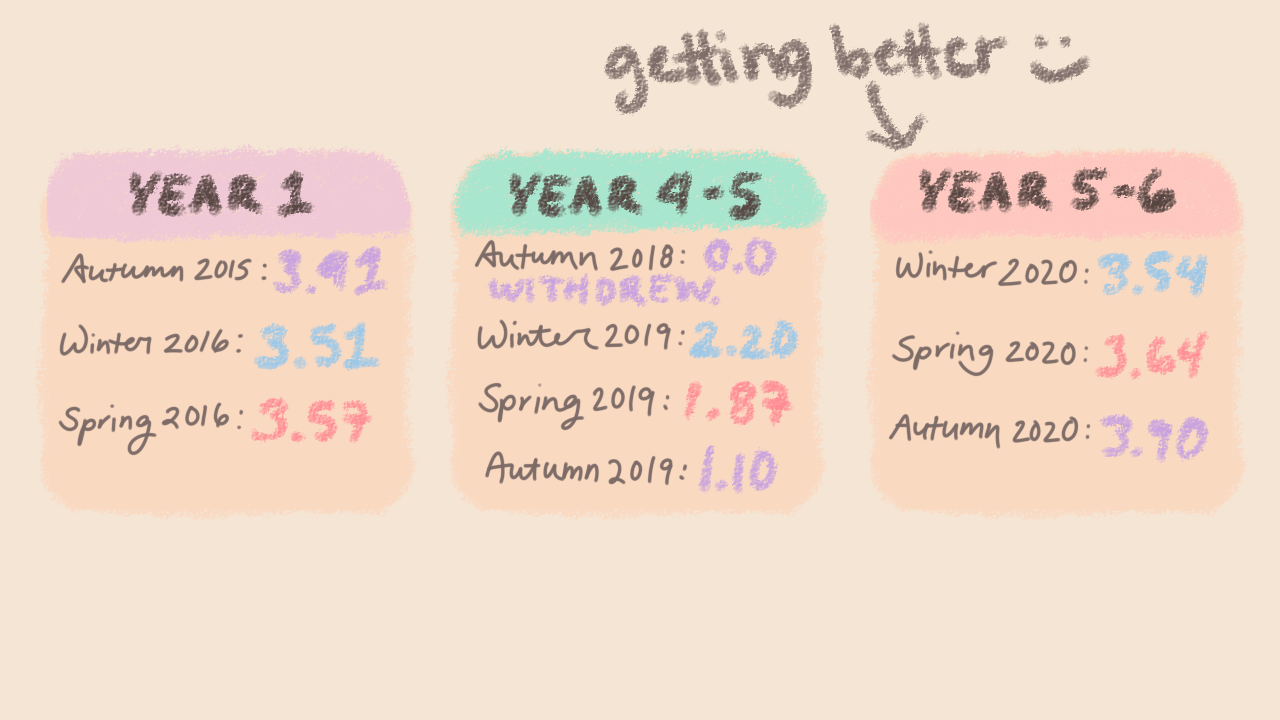 getting better
YEAR 1
Autumn 2015: 3.91
Winter 2016: 3.51
Spring 2016: 3.57
YEAR 4-5
Autumn 2018: 0.0
WITHDREW.
Winter 2019: 2.20
Spring 2019: 1.87
Autumn 2019: 1.10
YEAR 5-6
Winter 2020: 3.54
Spring 2020: 3.64
Autumn 2020: 3.90